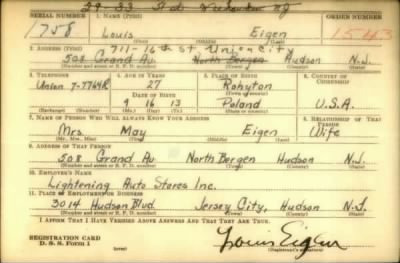 29-33 St. Weehawken NJ
SERIAL NUMBER 1. NAME (PRINT) ORDER NUMBER
1758 Louis Eigen 1543
711-16th St Union City
2. ADDRESS (PRINT)
508 Grand Av North Bergen Hudson N.J.
(Number and street or R. F. D. number) (Town) (County) (State)
3. TELEPHONE 4. AGE IN YEARS 5. PLACE OF BIRTH 6. COUNTRY OF CITIZENSHIP
Union 7-7764R 27 Rohyton
DATE OF BIRTH (Town or county)
9 16 13 Poland U.S.A.
(Exchange) (Number) (Mo.) (Day) (Yr.) (State or country)
7. NAME OF PERSON WHO WILL ALWAYS KNOW YOUR ADDRESS 8. RELATIONSHIP OF THAT PERSON
Mrs. May Eigen Wife
(Mr., Mrs., Miss) (First) (Middle) (Last)
9. ADDRESS OF THAT PERSON
508 Grand Av North Bergen Hudson N.J.
(Number and street or R. F. D. number) (Town) (County) (State)
10. EMPLOYER'S NAME
Lightening Auto Stores Inc.
11. PLACE OF EMPLOYMENT OR BUSINESS
3014 Hudson Blvd. Jersey City, Hudson N.J.
(Number and street or R. F. D. number) (Town) (County) (State)
I AFFIRM THAT I HAVE VERIFIED ABOVE ANSWERS AND THAT THEY ARE TRUE.
REGISTRATION CARD
D. S. S. Form 1 Louis Eigen
(Registrant's signature)